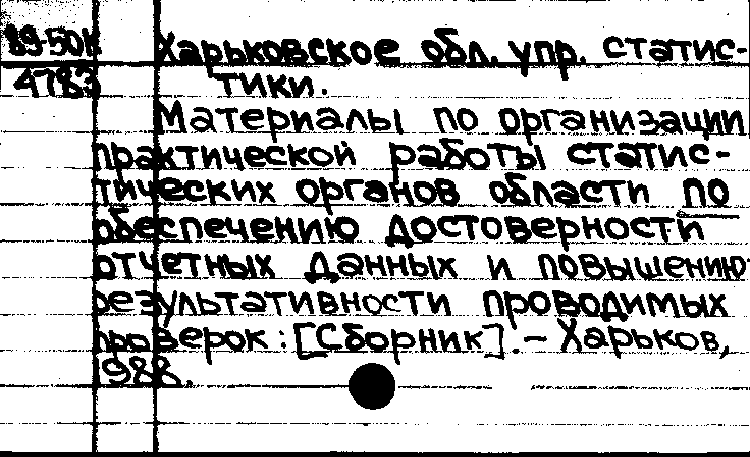 89-50к
4783
Харьковское обл. упр. статис-
тики.
Материалы по организации
практической работы статис-
тических органов области по
обеспечению достоверности
отчетных данных и повышению
результативности проводимых
проверок: [Сборник]. – Харьков,
1988.